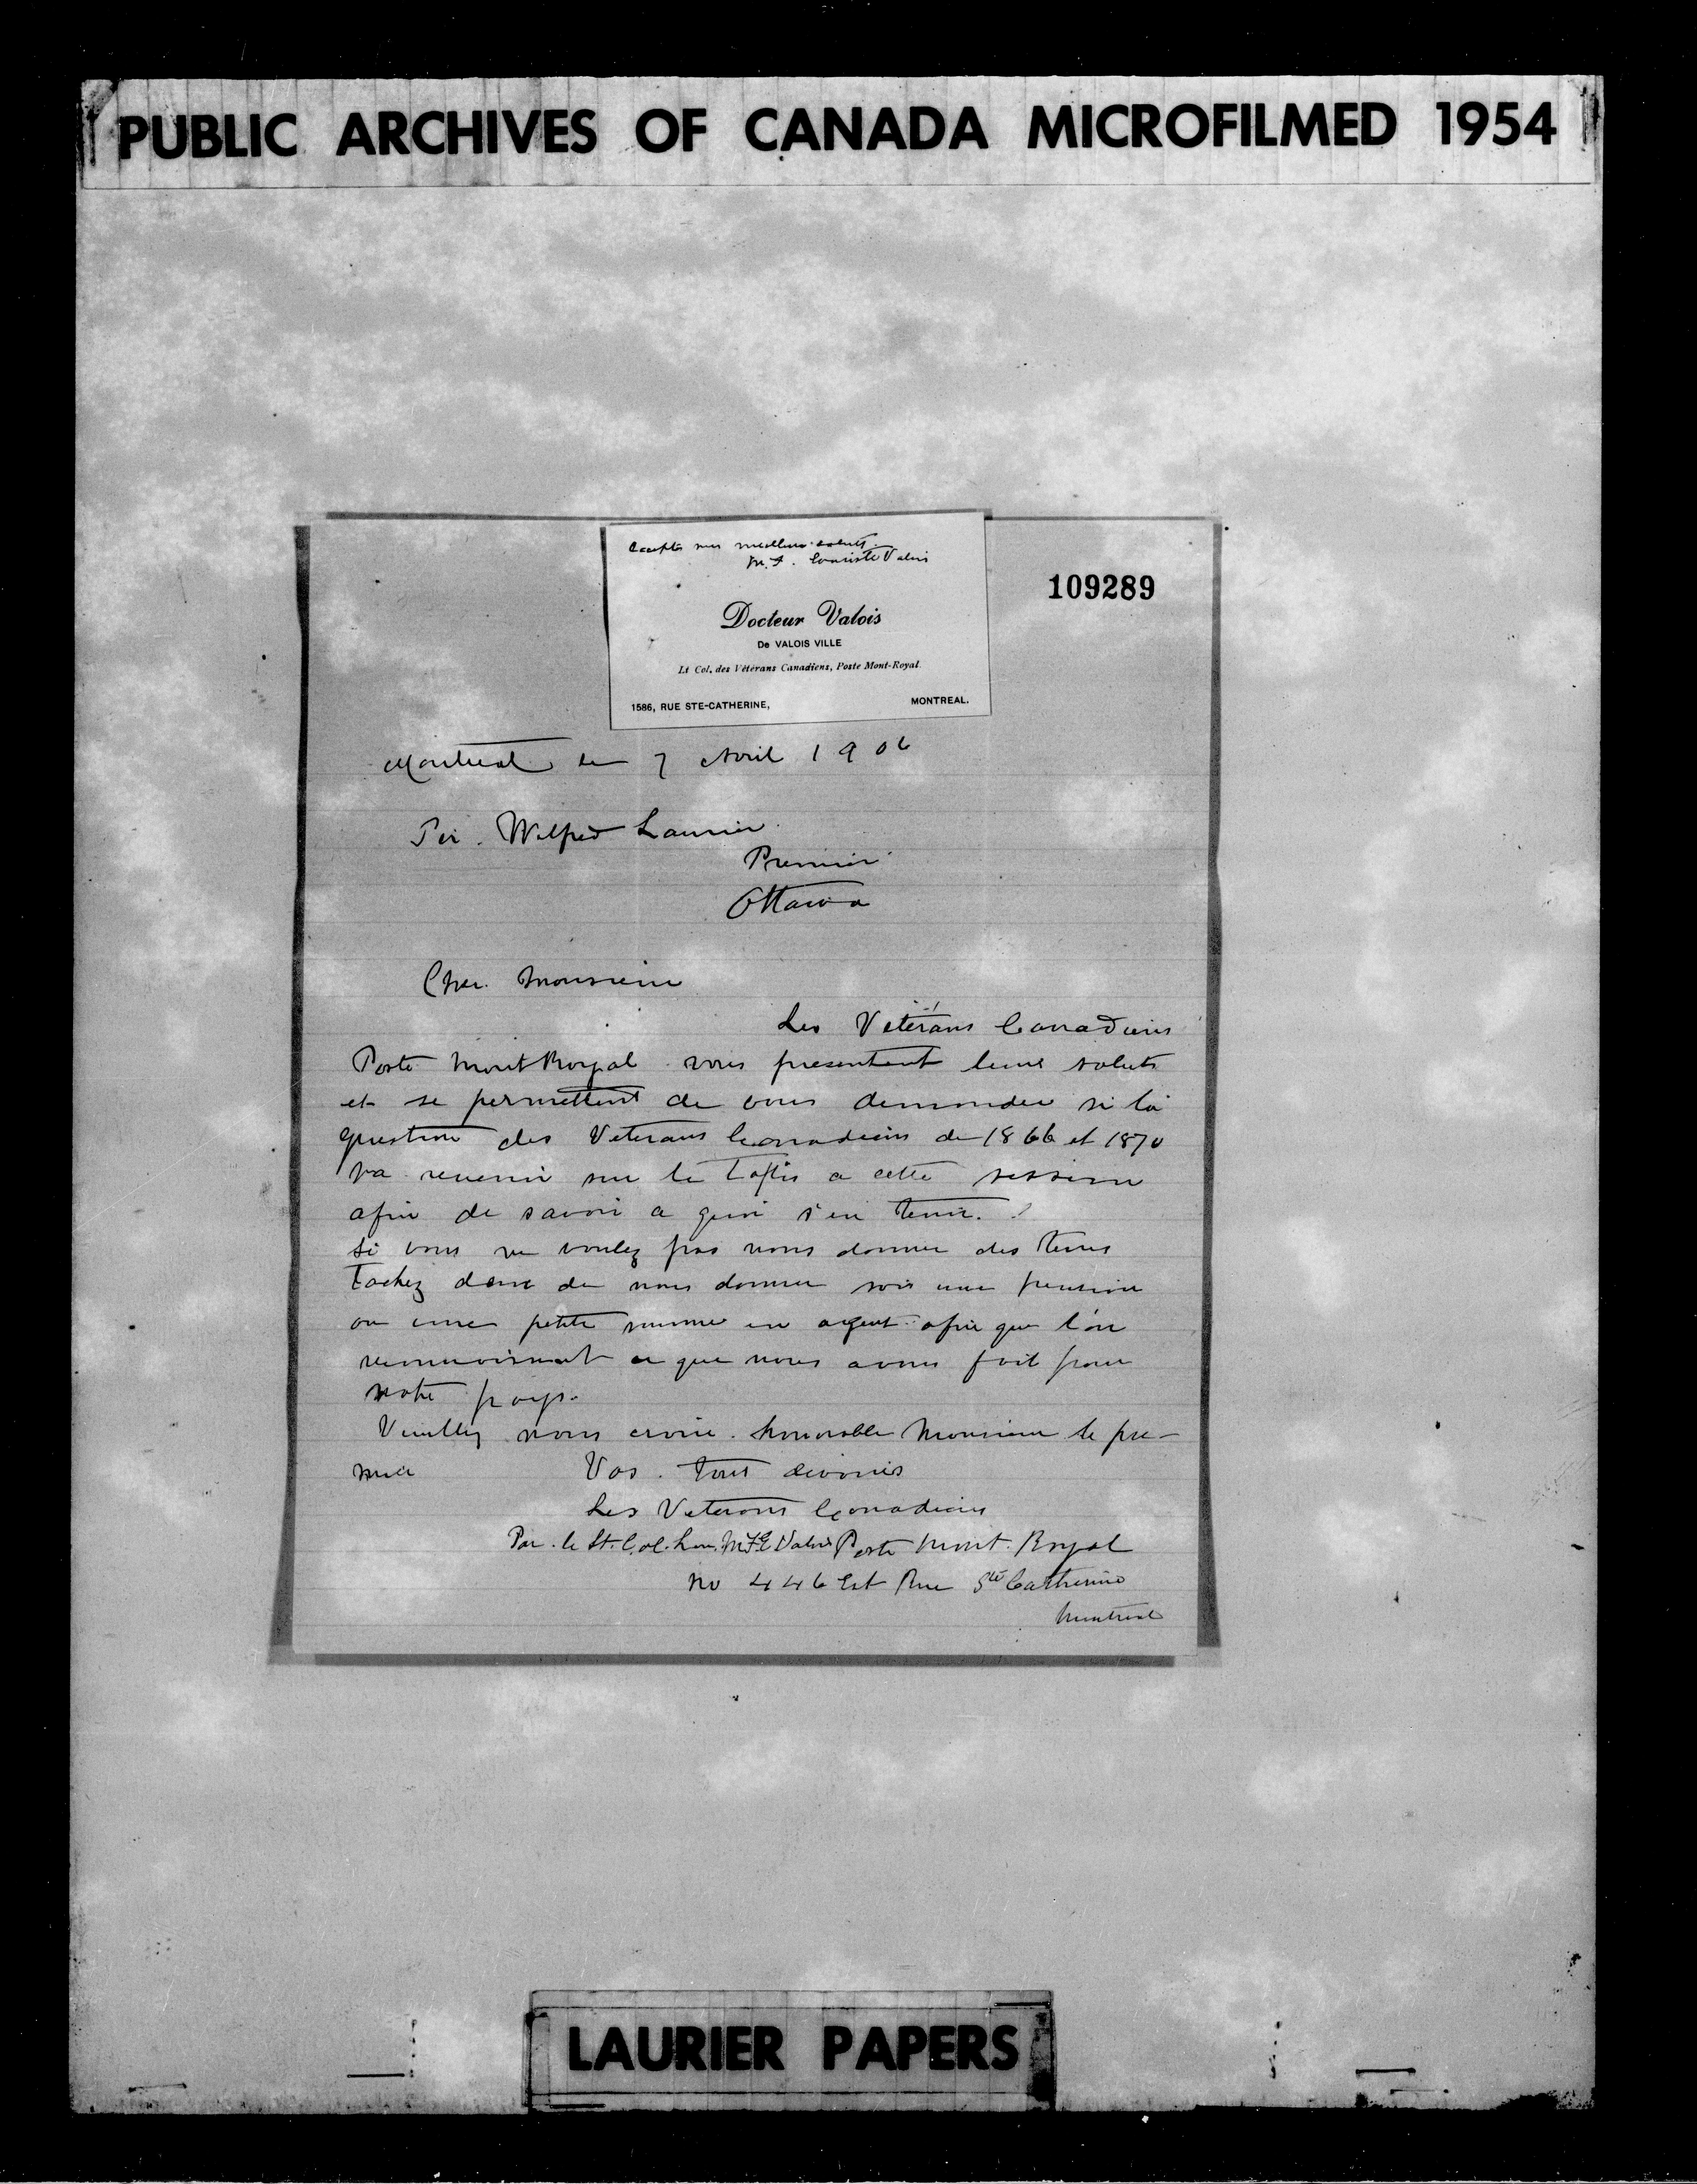 PUBLIC ARCHIVES OF CANADA MICROFILMED 1954
Acceptez mes meilleurs saluts.
M. F. Evariste Valois
109289
Docteur Valois
De VALOIS VILLE
Lt Col. des Vétérans Canadiens, Poste Mont-Royal.
1586, RUE STE-CATHERINE, MONTREAL.
Montreal le 7 Avril 1906
Sir. Wilfred Laurier.
Premier
Ottawa
Cher. Monsieur
Les Vétérans Canadiens
Poste Mont Royal vous presentent leurs saluts
et se permettent de vous demander si la
question des Veterans Canadiens de 1866 et 1870
va revenir sur le tapis a cette session
afin de savoir a quoi s'en tenir.
Si vous ne voulez pas nous donner des terres
Tachez donc de nous donner soit une pension
ou une petite somme en argent afin que l'on
reconnaissent ce que nous avons fait pour
notre pays.
Veuillez nous croire. honorable Monsieur le pre-
mier Vos. tout devoués
Les Veterans Canadiens
Par. le Lt. Col. M F E Valois Poste Mont. Royal
No 446 Est Rue Ste Catherine
Montreal
LAURIER PAPERS